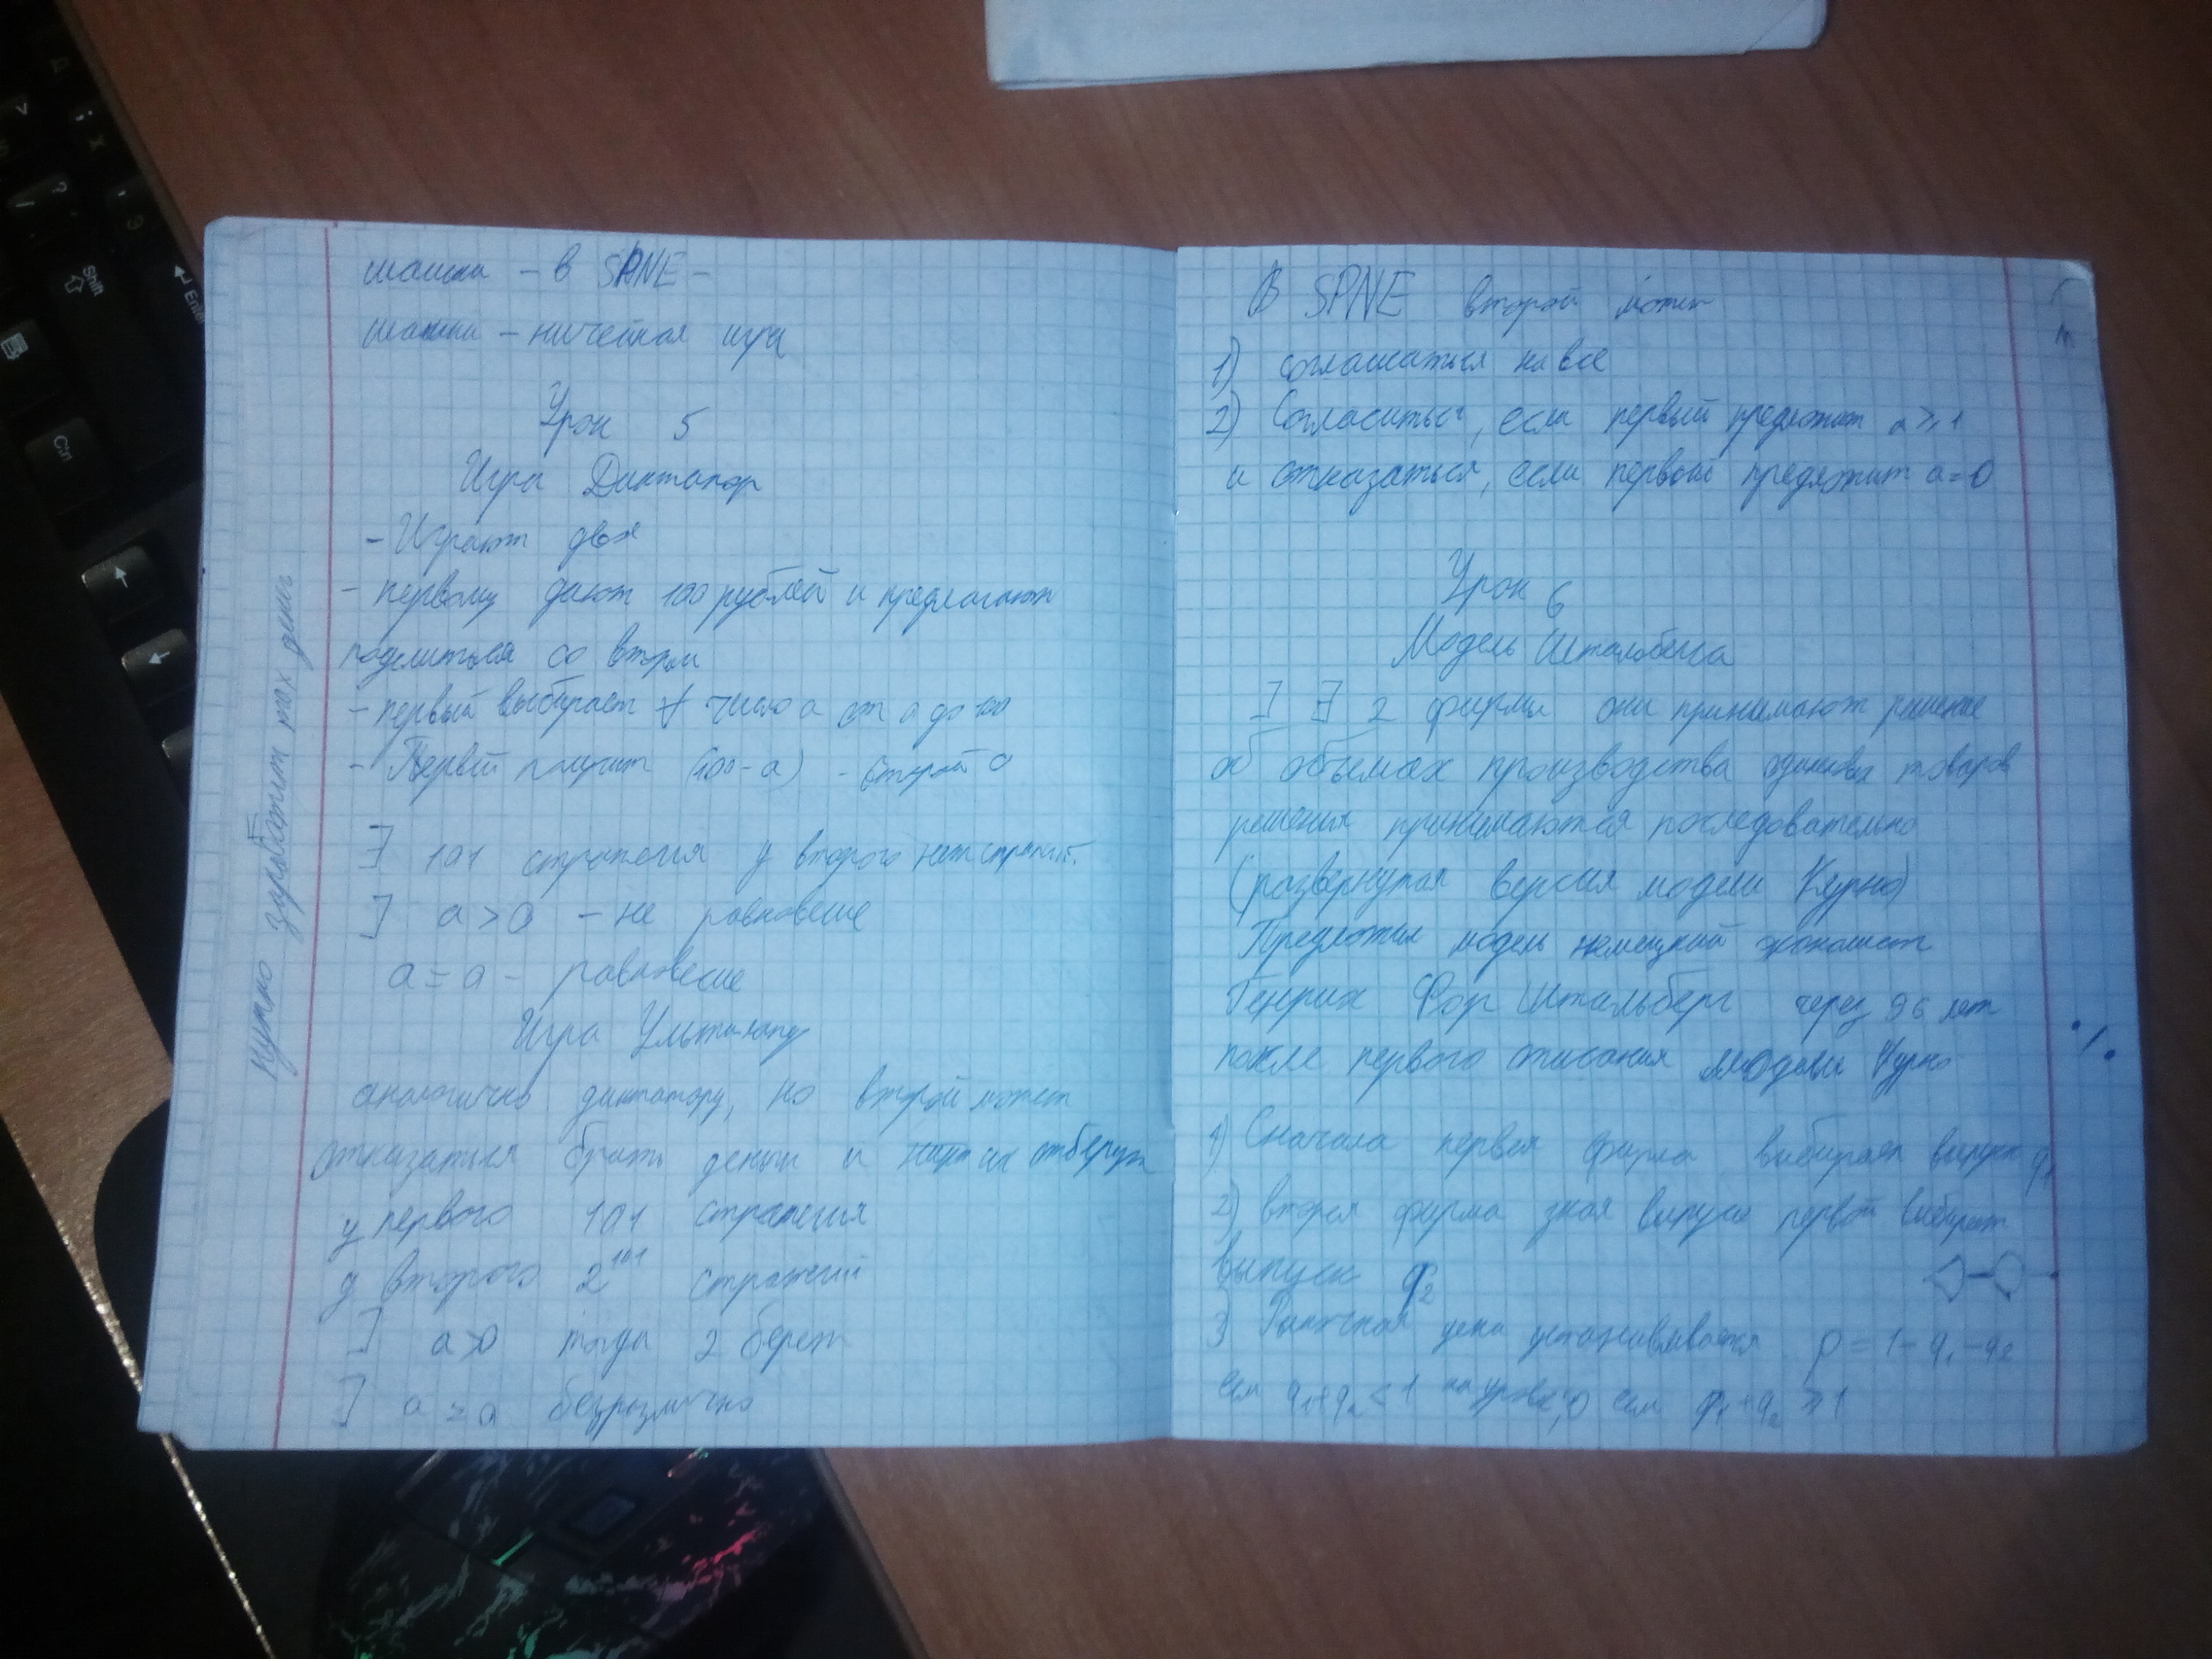 шашки – в SPNE –
шашки – ничейная игра
Урок 5
Игра Диктатор
– Играют двое
– первому дают 100 рублей и предлагают
поделиться со втором
– первый выбирает ∀ число a от 0 до 100
– Первый получит (100-a) – второй a
∃ 101 стратегия у второго нет стратег.
] a > 0 – не равновесие
a = 0 – равновесие
Игра Ультиматум
аналогично диктатору, но второй может
отказаться брать деньги и их отберут
у первого 101 стратегия
у второго 2^101 стратегий
] a>0 тогда 2 берет
] a = 0 безразлично
нужно заработать max денег
В SPNE второй может
1) соглашаться на все
2) Согласиться, если первый предложит a ⩾ 1
и отказаться, если первый предложит a = 0
Урок 6
Модель
] ∃ 2 фирмы они принимают решение
об объемах производства одинаковых товаров
решения принимаются последовательно
(развернутая версия модели Курно)
Предложил модель немецкий экономист
Генрих Фон Штакельберг через 96 лет
после первого описания модели Курно
1) Сначала первая фирма выбирает выпуск q1
2) вторая фирма зная выпуск первой выбирает
выпуск q2
3) Рыночная цена устанавливается p = 1 - q1 - q2
если q1+q2 < 1 на уровне, 0 если q1 + q2 ⩾ 1